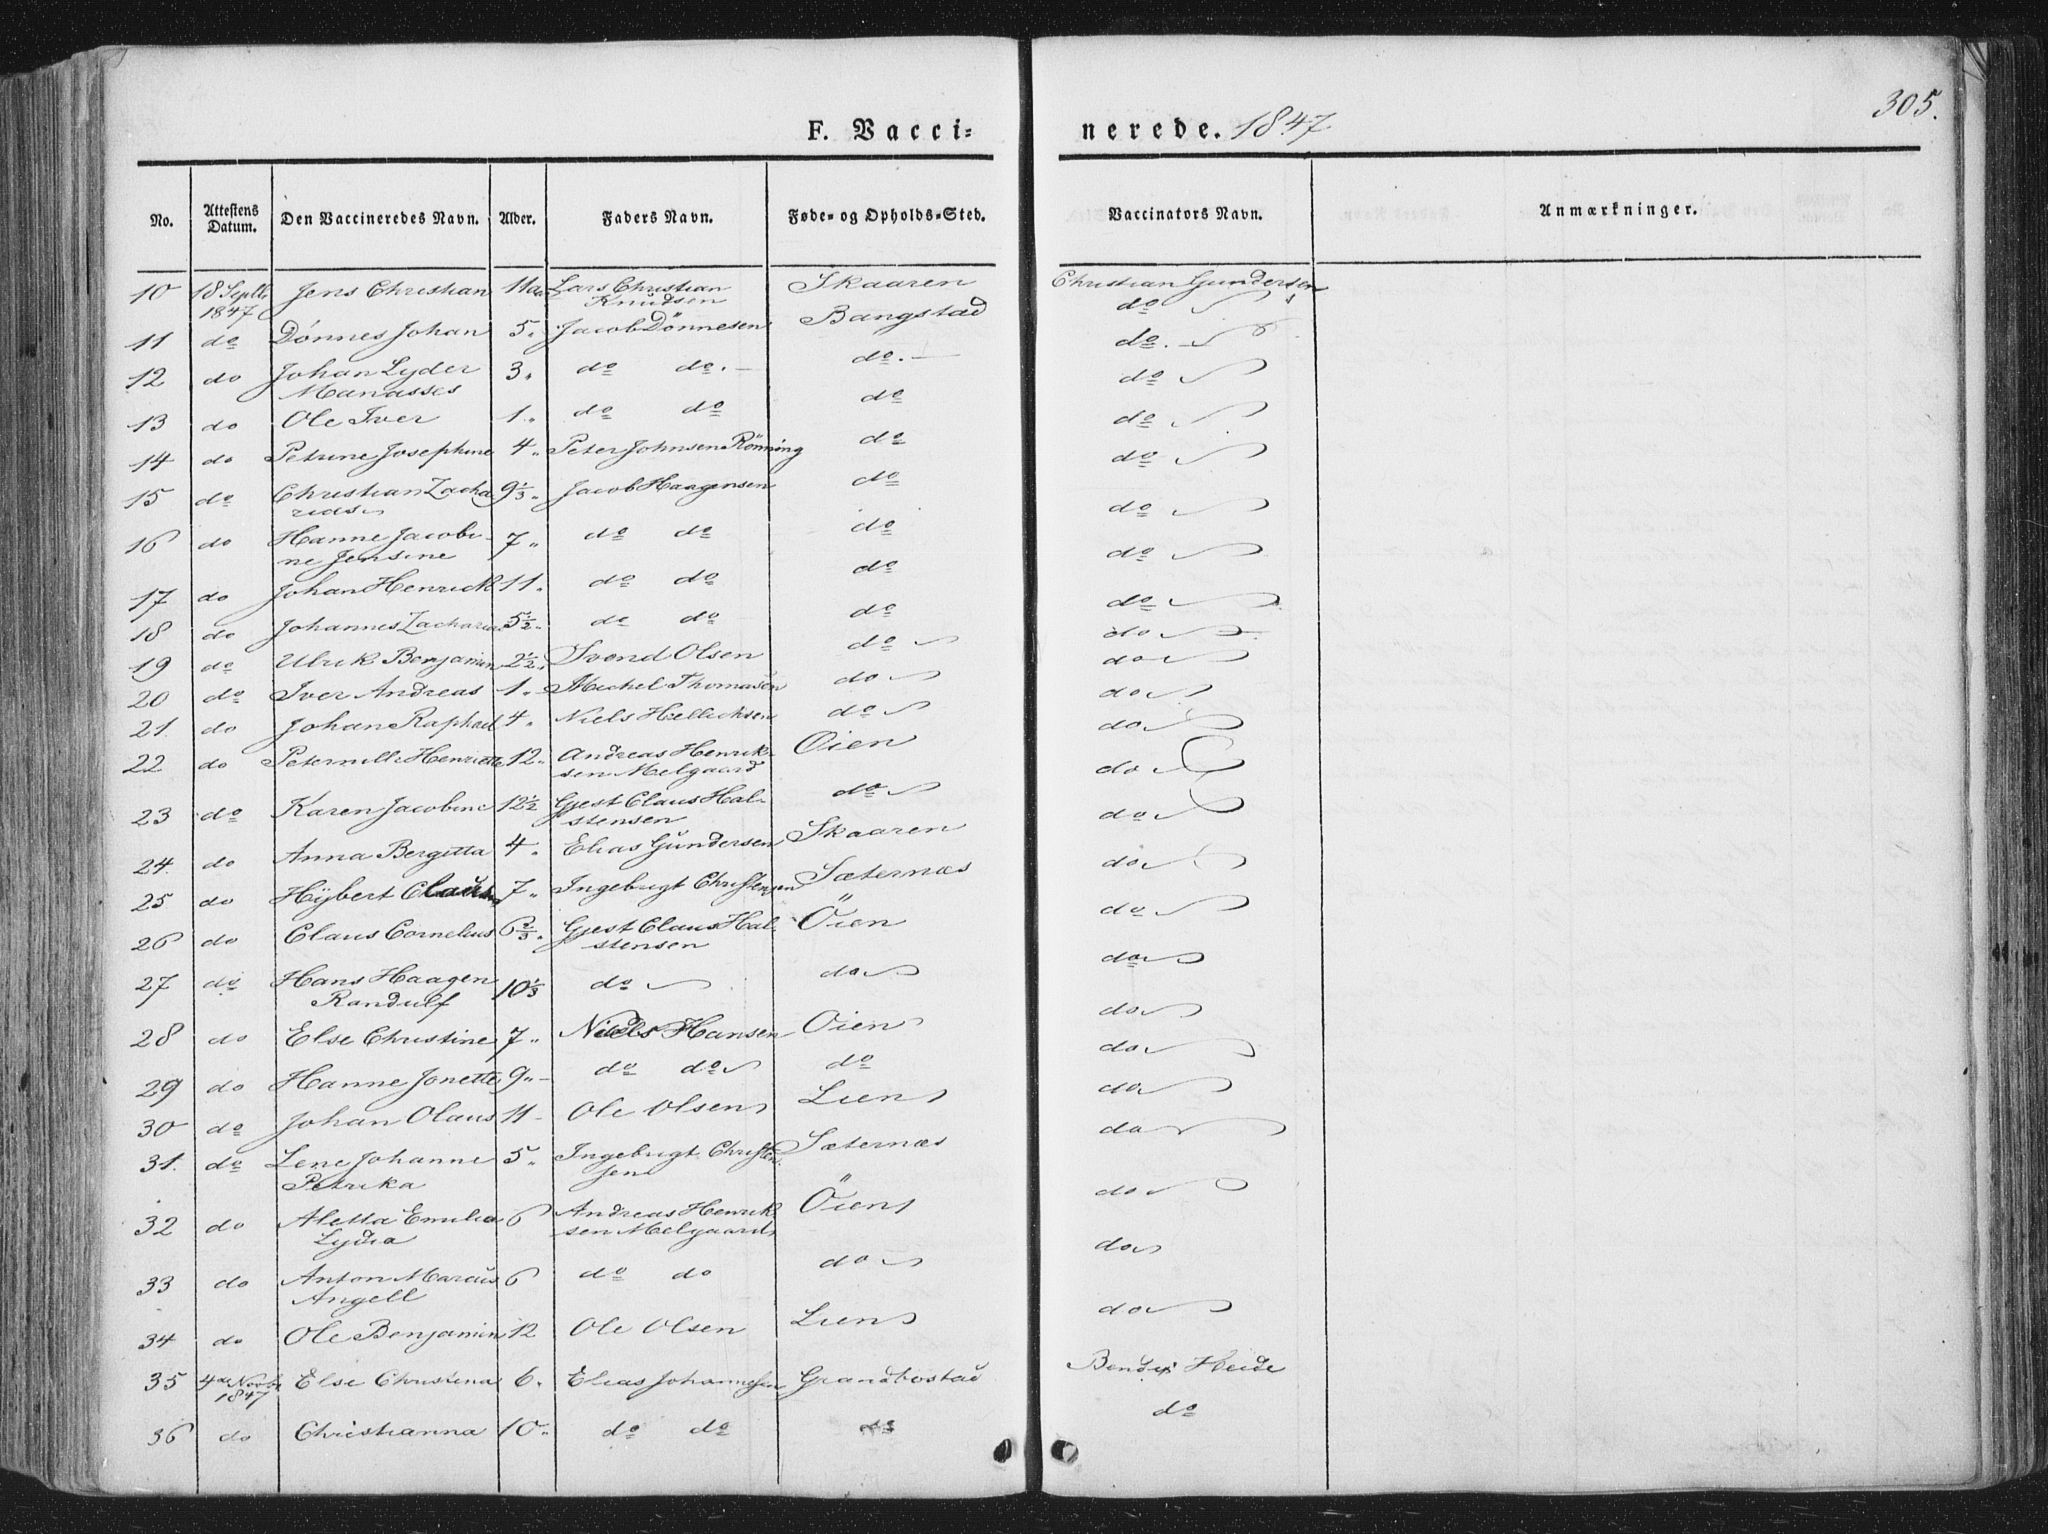 305.
F. Vaccinerede. 1847
No. Attestens Datum. Den Vaccineredes Navn. Alder. Faders Navn. Føde- og Opholds-Sted. Vaccinators Navn. Anmærkninger.
10 18 Septb. 1847 Jens Christian 11 aar Lars Christian Knudsen Skaaren Christian Gundersen
do
11 do Dønnes Johan 5 Jacob Dönnesen Bangstad do.
12 do Johan Lyder Manasses 3 do do. do. do
13 do Ole Iver 1 do do do do
14 do Petrine Josephine 4 Peter Johnsen Rönning do do
15 do Christian Zacharias 9 1/3 Jacob Haagensen do do
16 do Hanne Jacobine Jensine 7 do do do do
17 do Johan Henrich 11 do do do do
18 do Johannes Zacharias 5 1/2 do do do do
19 do Ulrik Benjamin 2 1/2 Svend Olsen do do
20 do Iver Andreas 1 Michel Thomasen do do
21. do Johan Raphael 4 Niels Hellichsen do do
22 do Peternille Henriette 12 Andreas Henriksen Melgaard Oien do
23 do Karen Jacobine 12 1/2 Gjest Claus Halstensen do do
24. do Anna Bergitta 4 Elias Gundersen Skaaren do
25 do Hÿbert Claus 7 Ingebrigt Christensen Sæternæs do
26 do Claus Cornelius 6 2/3 Gjest Claus Halstensen Öien do
27 do Hans Haagen Randulf 10 1/3 do do do
28 do Else Christine 7 Niels Hansen Oien do
29 do Hanne Jonette 9 do do do do
30 do Johan Olaus 11 Ole Olsen Lien do
31. do Lene Johanne Petrika 5 Ingebrigt Christensen Sæternæs do
32 do Aletta Emilia Lydia 6 Andreas Henriksen Melgaard Öien do
33 do Anton Marcus Angell 6 do do do do
34 do Ole Benjamin 12 Ole Olsen Lien do
35 4de Novbr 1847 Else Christina 6 Elias Johannesen Grandbostad Bendix Heide
36 do Christianna 10 do do do do